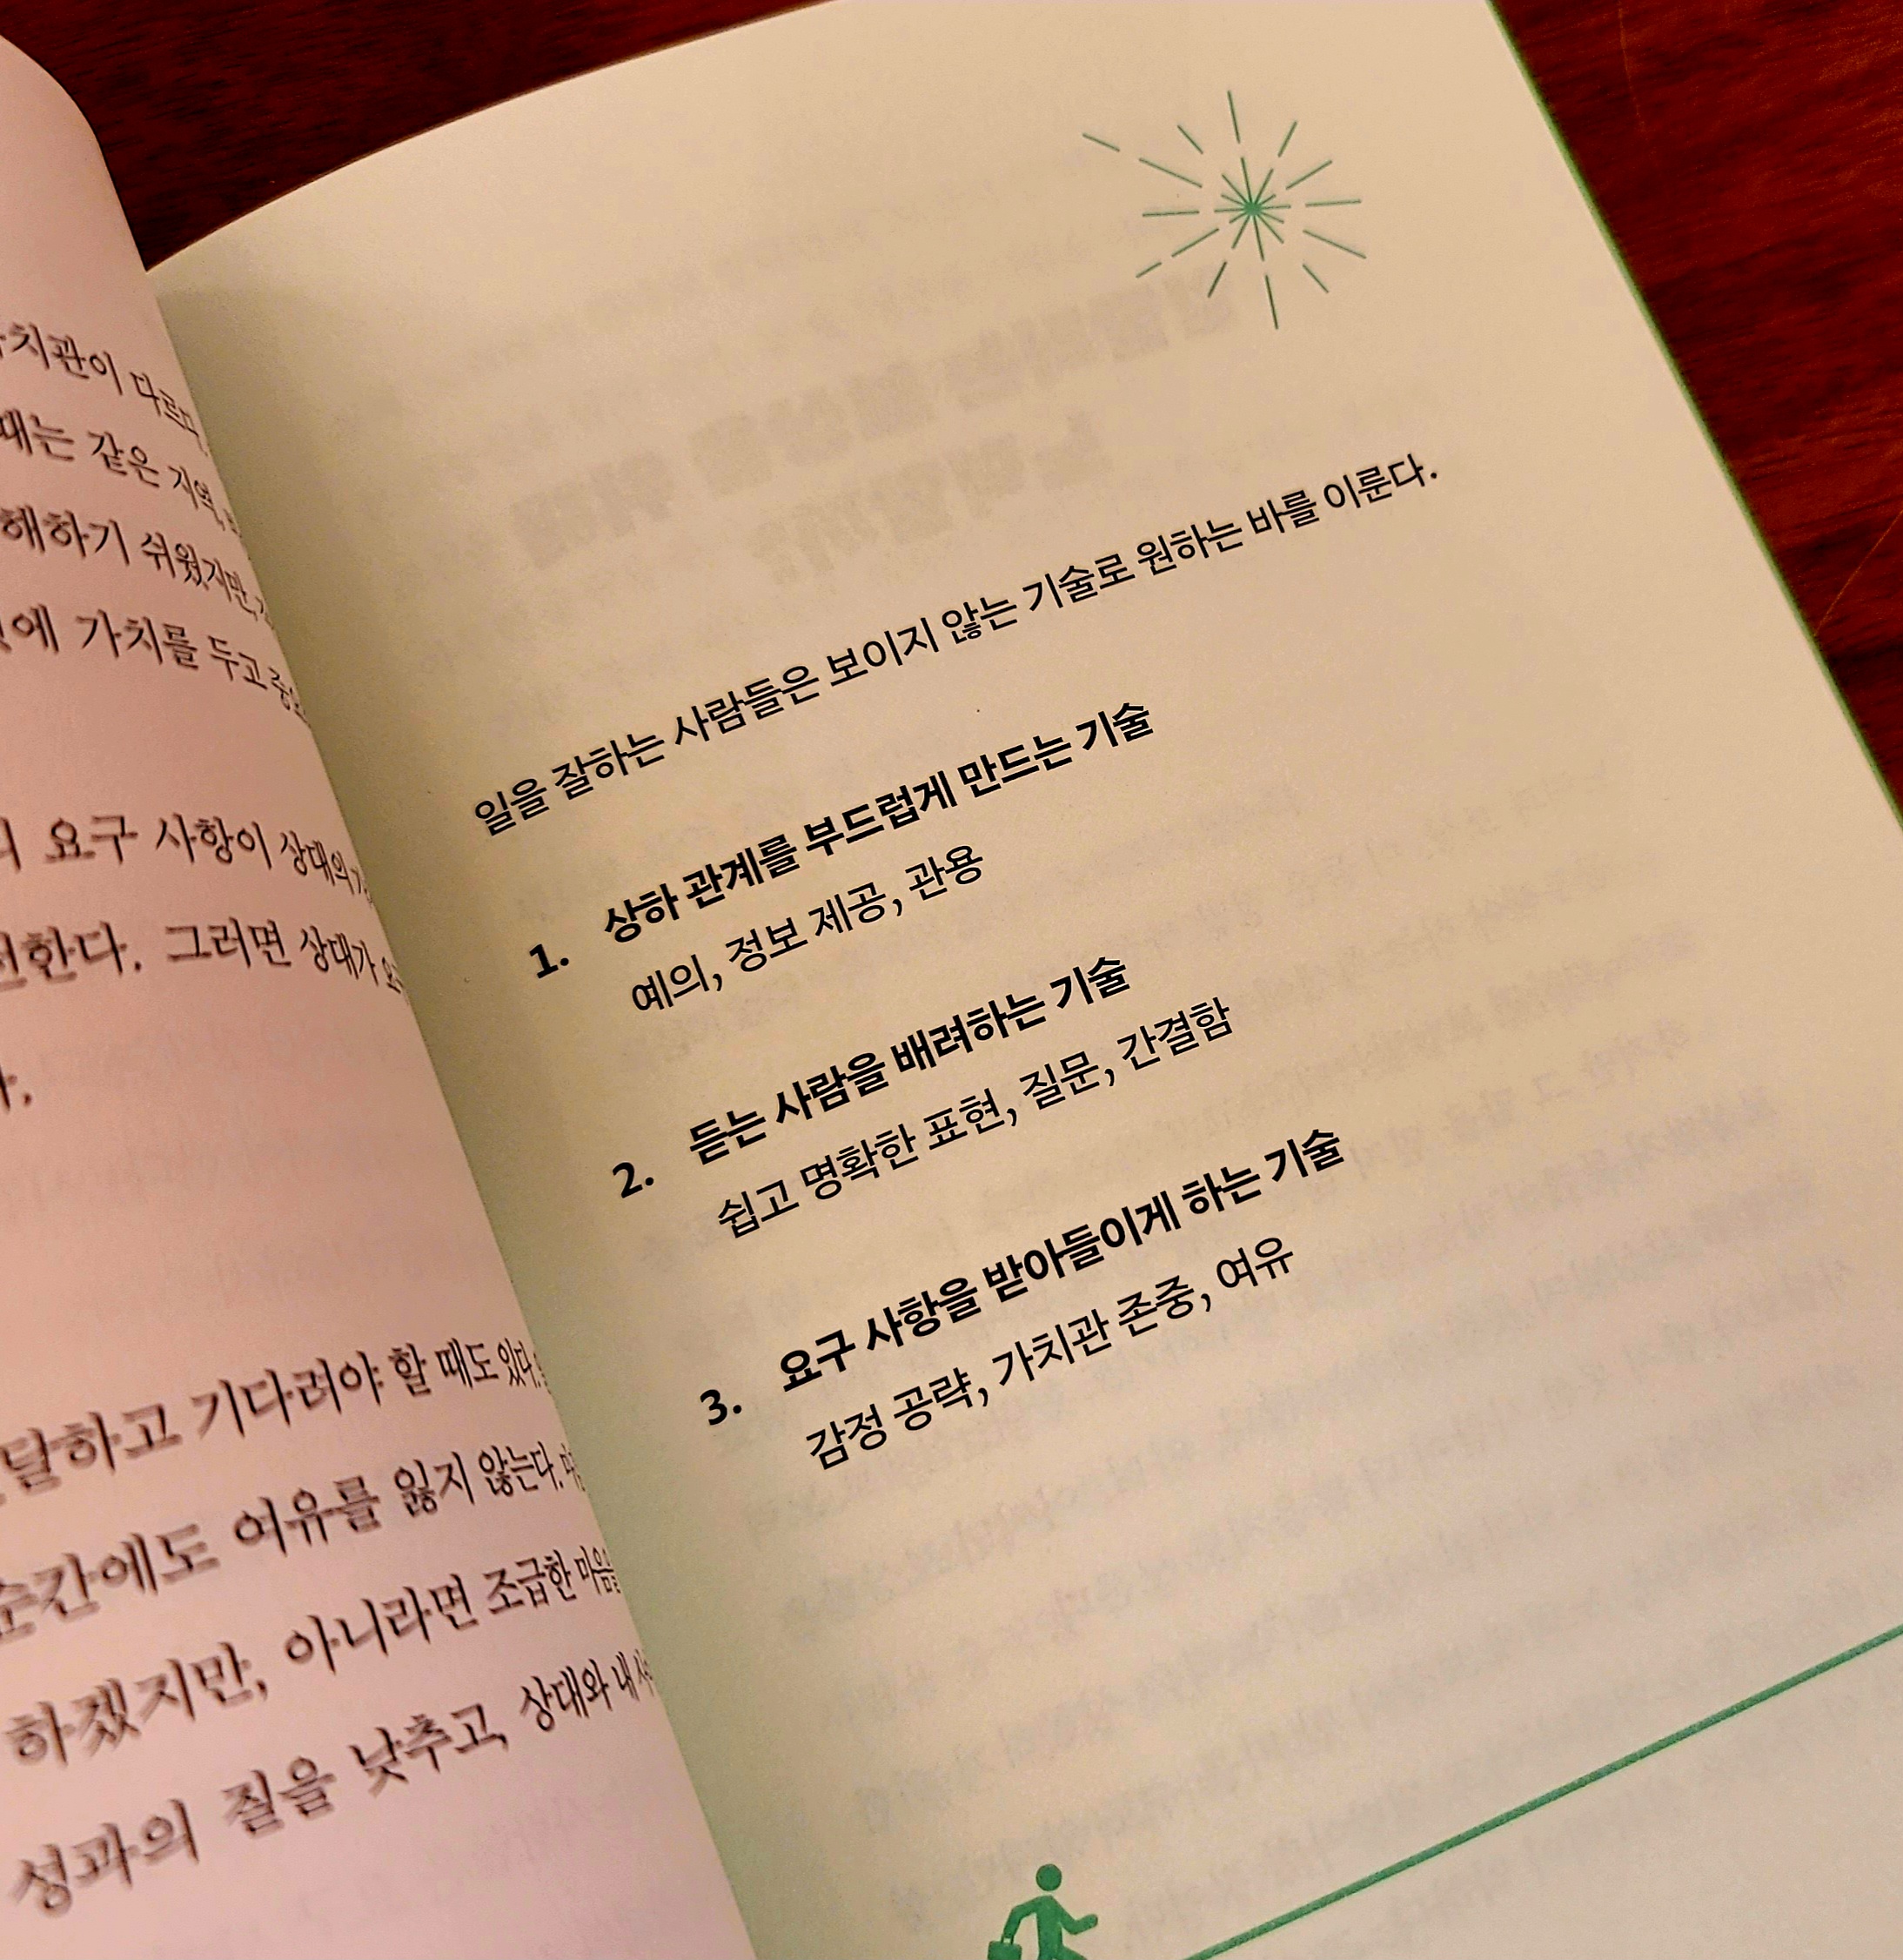 다르다
때는 같은
해하기 쉬웠지만,
에 가치를 두고
요구 사항이 상대의
한다. 그러면 상대가
하고 기다려야 할 때도 있다.
순간에도 여유를 잃지 않는다.
하겠지만, 아니라면 조급한 마음을
성과의 질을 낮추고, 상대와 내
일을 잘하는 사람들은 보이지 않는 기술로 원하는 바를 이룬다.
1. 상하 관계를 부드럽게 만드는 기술
예의, 정보 제공, 관용
2. 듣는 사람을 배려하는 기술
쉽고 명확한 표현, 질문, 간결함
3. 요구 사항을 받아들이게 하는 기술
감정 공략, 가치관 존중, 여유